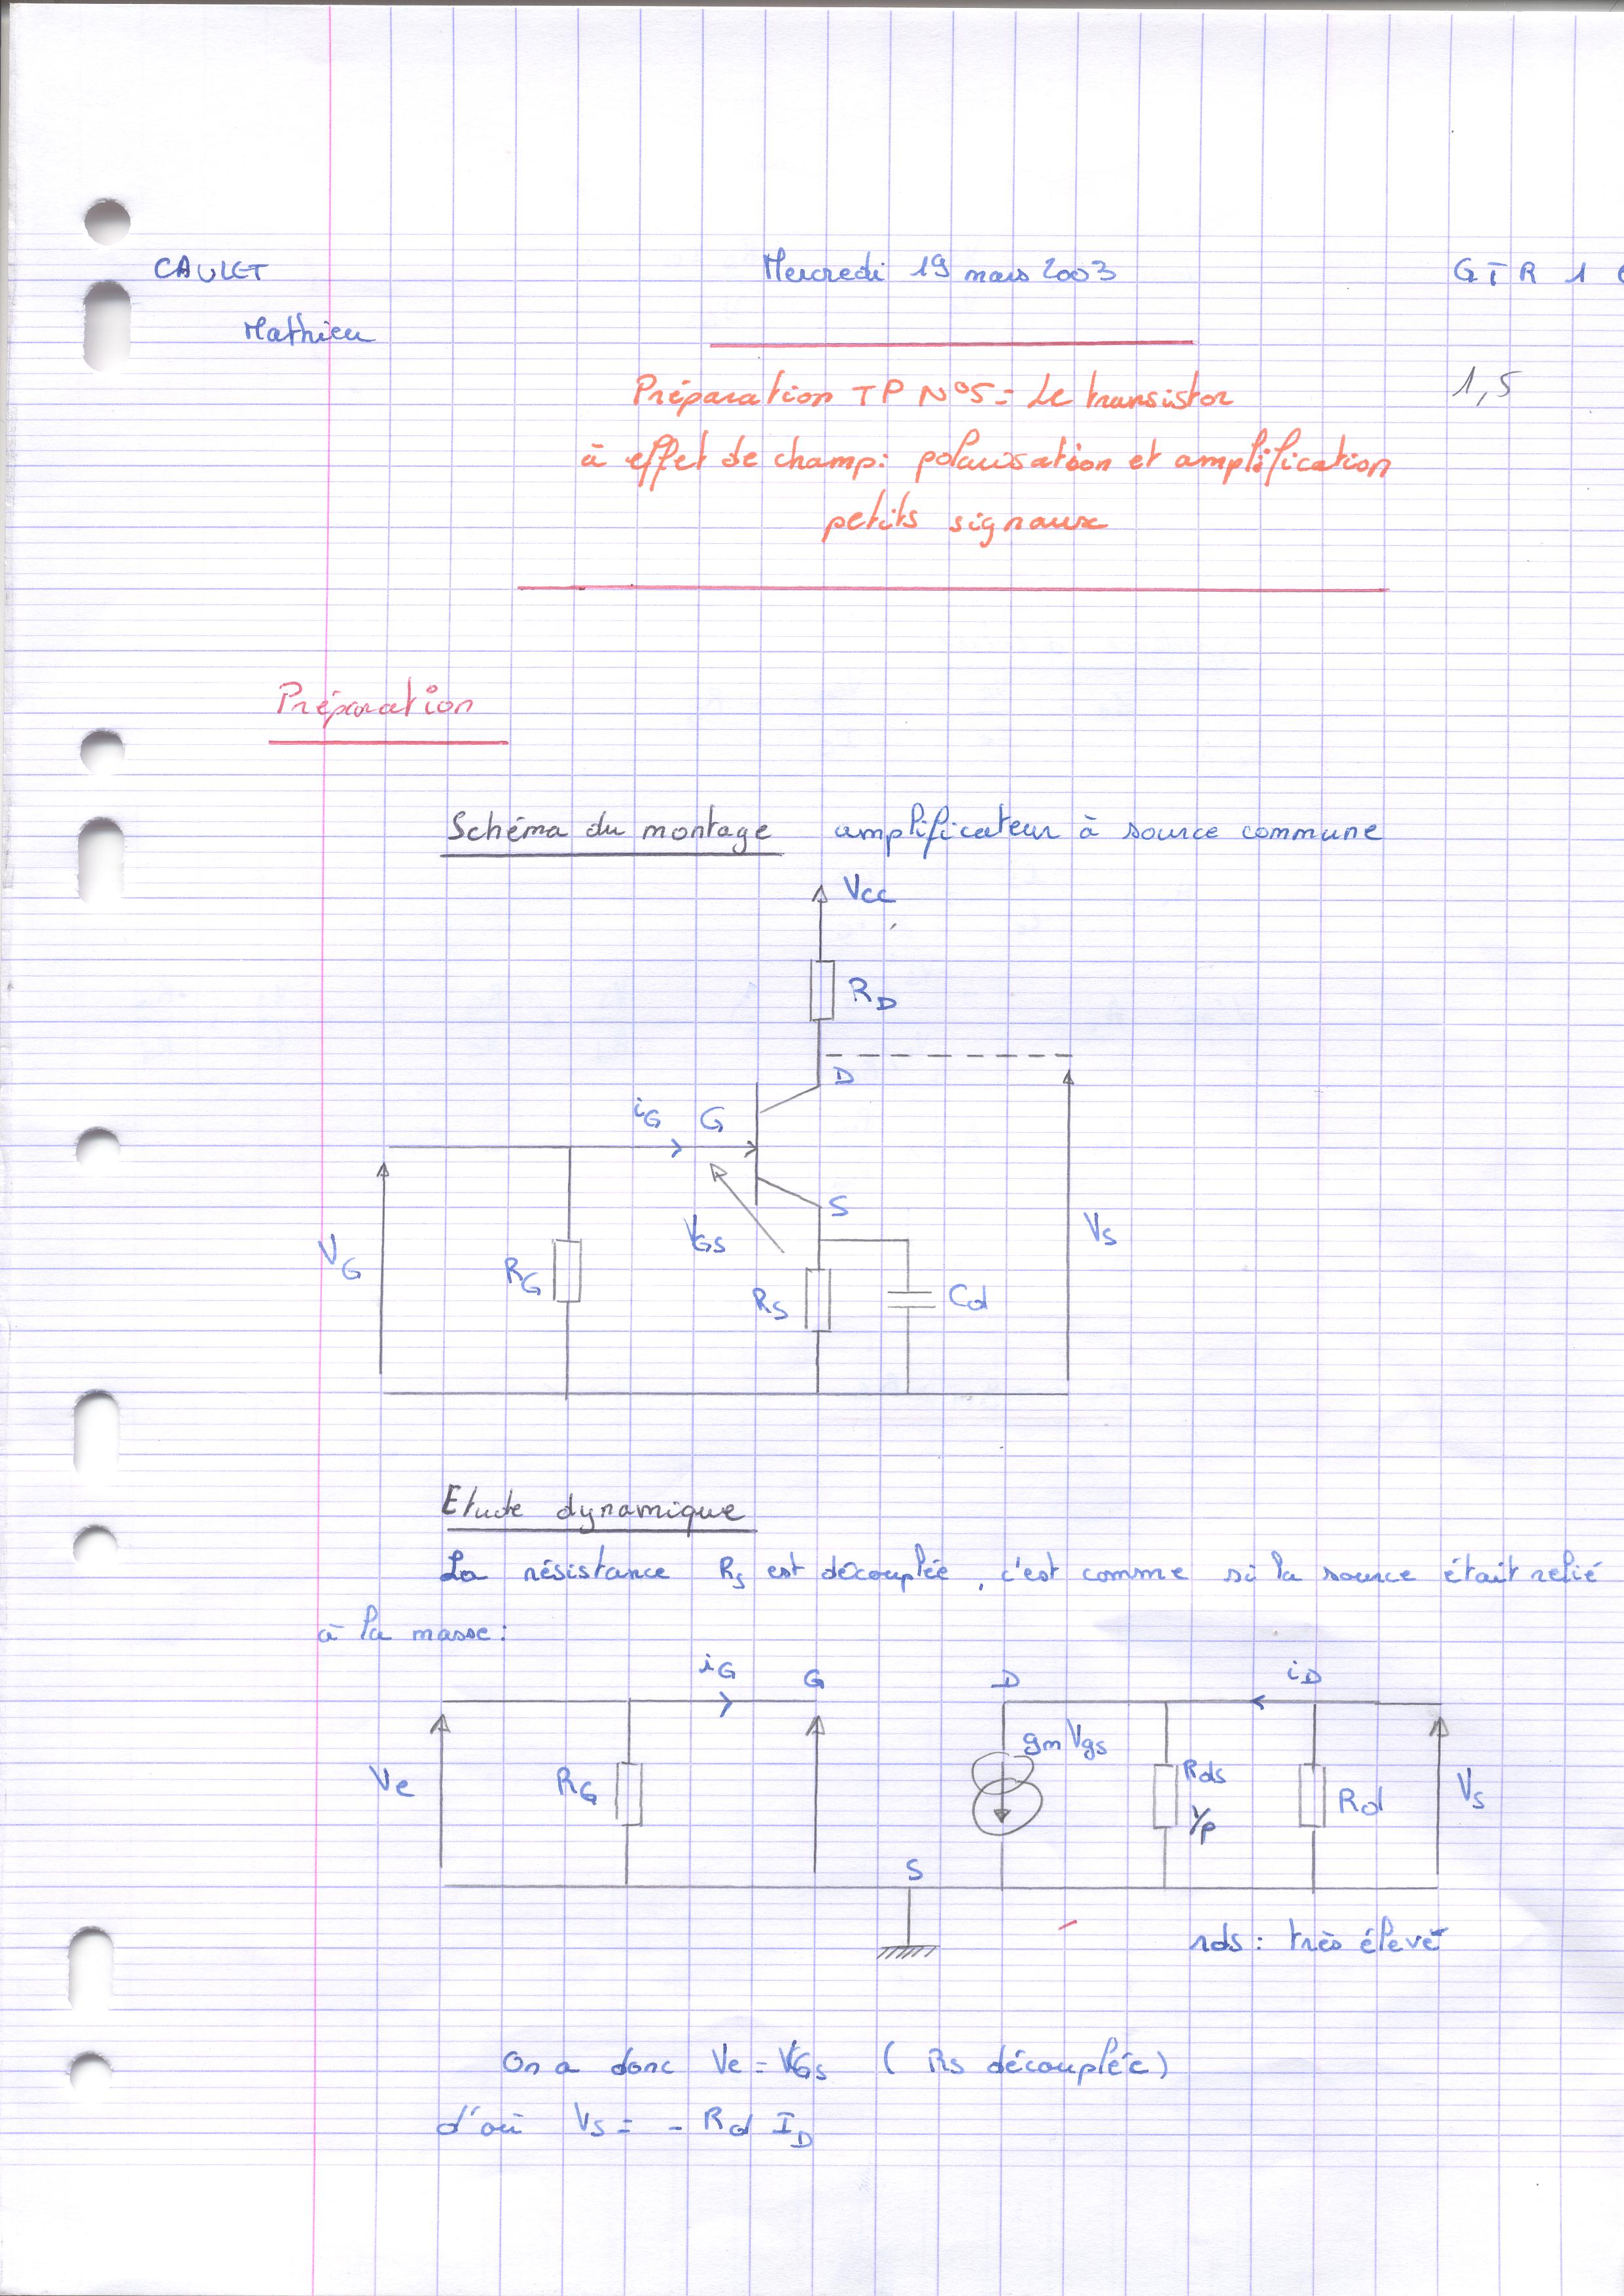 CAULET Mercredi 19 mars 2003 GTR 1
Mathieu
1,5
Préparation TP N°5 = Le transistor
à effet de champ : polarisation et amplification
petits signaux
Préparation
Schéma du montage amplificateur à source commune
Vcc
RD
D
iG G
S
VGS
VG
RG
RS
Cd
VS
Etude dynamique
La résistance Rs est découplée, c'est comme si la source était relié
à la masse :
iG G D iD
gm Vgs
Ve
RG
Rds
1/ρ
Rd
Vs
S
rds : très élevé
On a donc Ve = VGS ( Rs découplée)
d'où Vs = - Rd ID